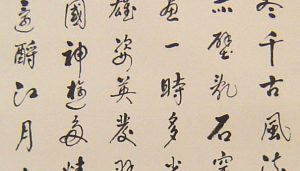 盡千古風流
赤壁亂石穿
畫一時多少
雄姿英發羽
國神遊多情
還酹江月